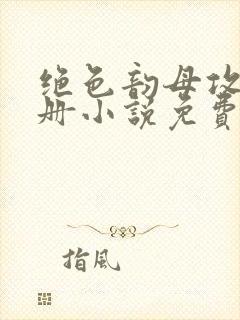 绝色韵母攻
册小说免费
指风